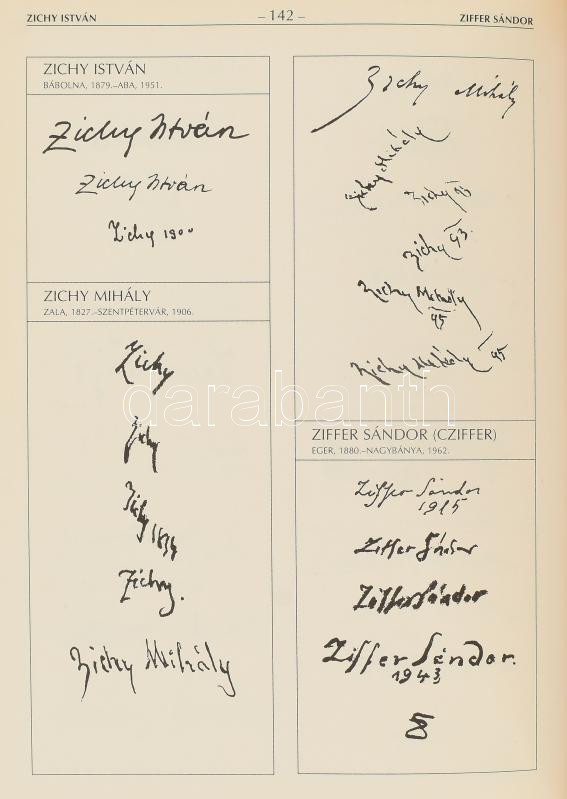 ZICHY ISTVÁN
– 142 –
ZIFFER SÁNDOR
ZICHY ISTVÁN
BÁBOLNA, 1879.–ABA, 1951.
Zichy István
Zichy István
Zichy 1900
ZICHY MIHÁLY
ZALA, 1827.–SZENTPÉTERVÁR, 1906.
Zichy
Zichy
Zichy
Zichy.
Zichy Mihály
Zichy Mihály
Zichy Mihály
Zichy 93
Zichy 93.
Zichy Mihály
95
Zichy Mihály 95
ZIFFER SÁNDOR (CZIFFER)
EGER, 1880.–NAGYBÁNYA, 1962.
Ziffer Sándor
1915
Ziffer Sándor
Ziffer Sándor
Ziffer Sándor.
1943
darabanth